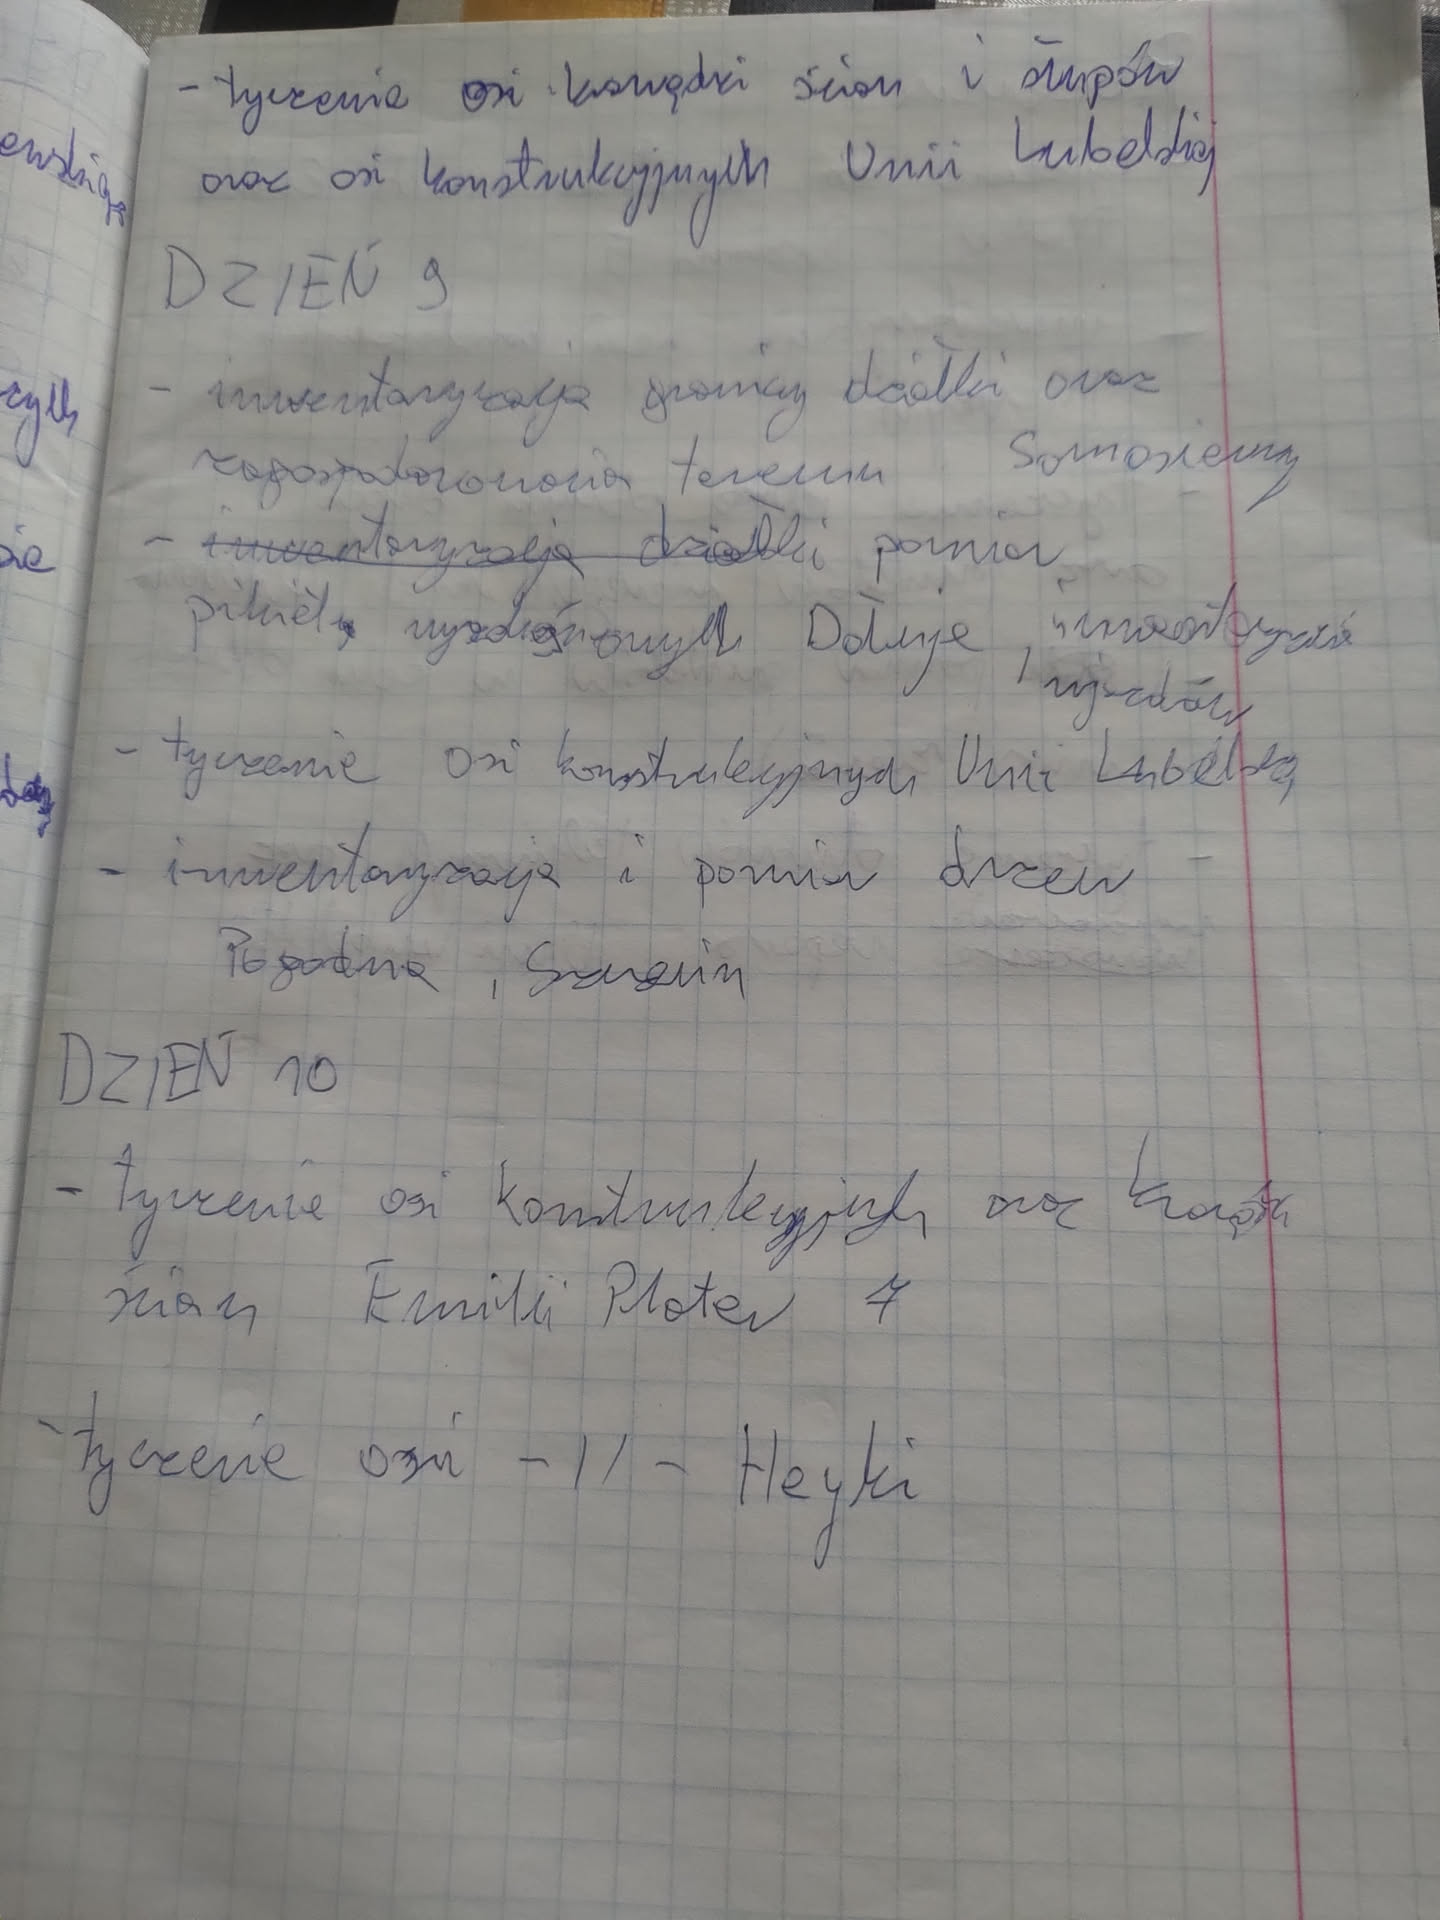 - tyczenie osi krawędzi ścian i słupów
oraz osi konstrukcyjnych Unii Lubelskiej
DZIEŃ 9
- inwentaryzacja granicy działki oraz
zagospodarowania terenu Somosierry
- inwentaryzacja działki pomiar
pikiet wysokościowych Dołuje, inwentaryzacja
wjazdów
- tyczenie osi konstrukcyjnych Unii Lubelską
- inwentaryzacja i pomiar drzew -
Pogodna, Szczecin
DZIEŃ 10
- tyczenie osi konstrukcyjnych oraz
ścian Emilii Plater 7
- tyczenie osi -//- Heyki